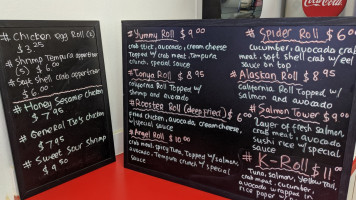 * Chicken egg Roll (2)
$ 3.25
* Shrimp Tempura appetizer
(5) $ 6.00
* Soft shell crab appetizer
$ 6.00
* Honey Sesame chicken
$ 7.95
* General Tso's chicken
$ 7.95
* Sweet Sour Shrimp
$ 9.50
* Yummy Roll $ 9.00
crab stick, avocado, cream cheese
Topped w/ crab meat, Tempura
crunch, special sauce
* Tonya Roll $ 8.95
california Roll Topped w/
Shrimp and avocado
* Rooster Roll (deep fried) $ 6.00
fried chicken, avocado, cream cheese,
w/ special sauce
* Angel Roll $ 10.00
crab meat, spicy Tuna, Topped w/ Salmon,
avocado, Tempura crunch w/ special
sauce
* Spider Roll $ 6.00
cucumber, avocado, crab
meat, soft shell crab w/ eel
sauce on top
* Alaskan Roll $ 8.95
California Roll Topped w/
Salmon and avocado
* Salmon Tower $ 9.00
Layer of fresh salmon,
crab meat, avocado,
Sushi rice w/ special
sauce
* K-Roll $ 11.00
Tuna, salmon, Yellowtail,
crab meat, cucumber,
avocado wrapped in
rice paper
Coca-Cola